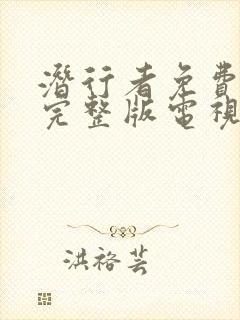 潛行者免費
完整版電視
洪裕芸